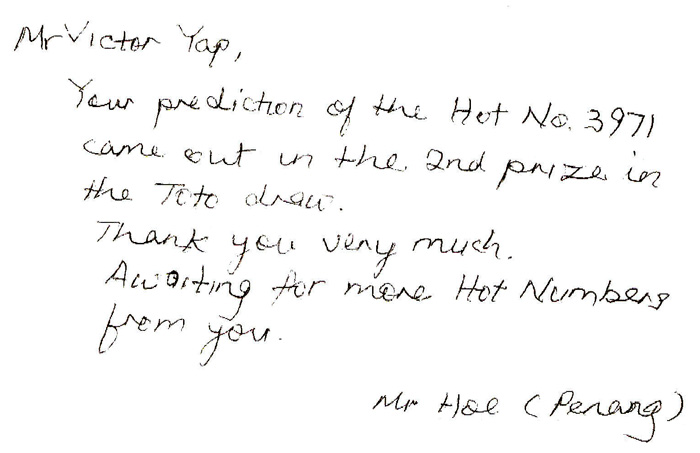 Mr Victor Yap,
Your prediction of the Hot No. 3971
came out in the 2nd prize in
the Toto draw.
Thank you very much.
Awaiting for more Hot Numbers
from you.
Mr Hoe (Penang)